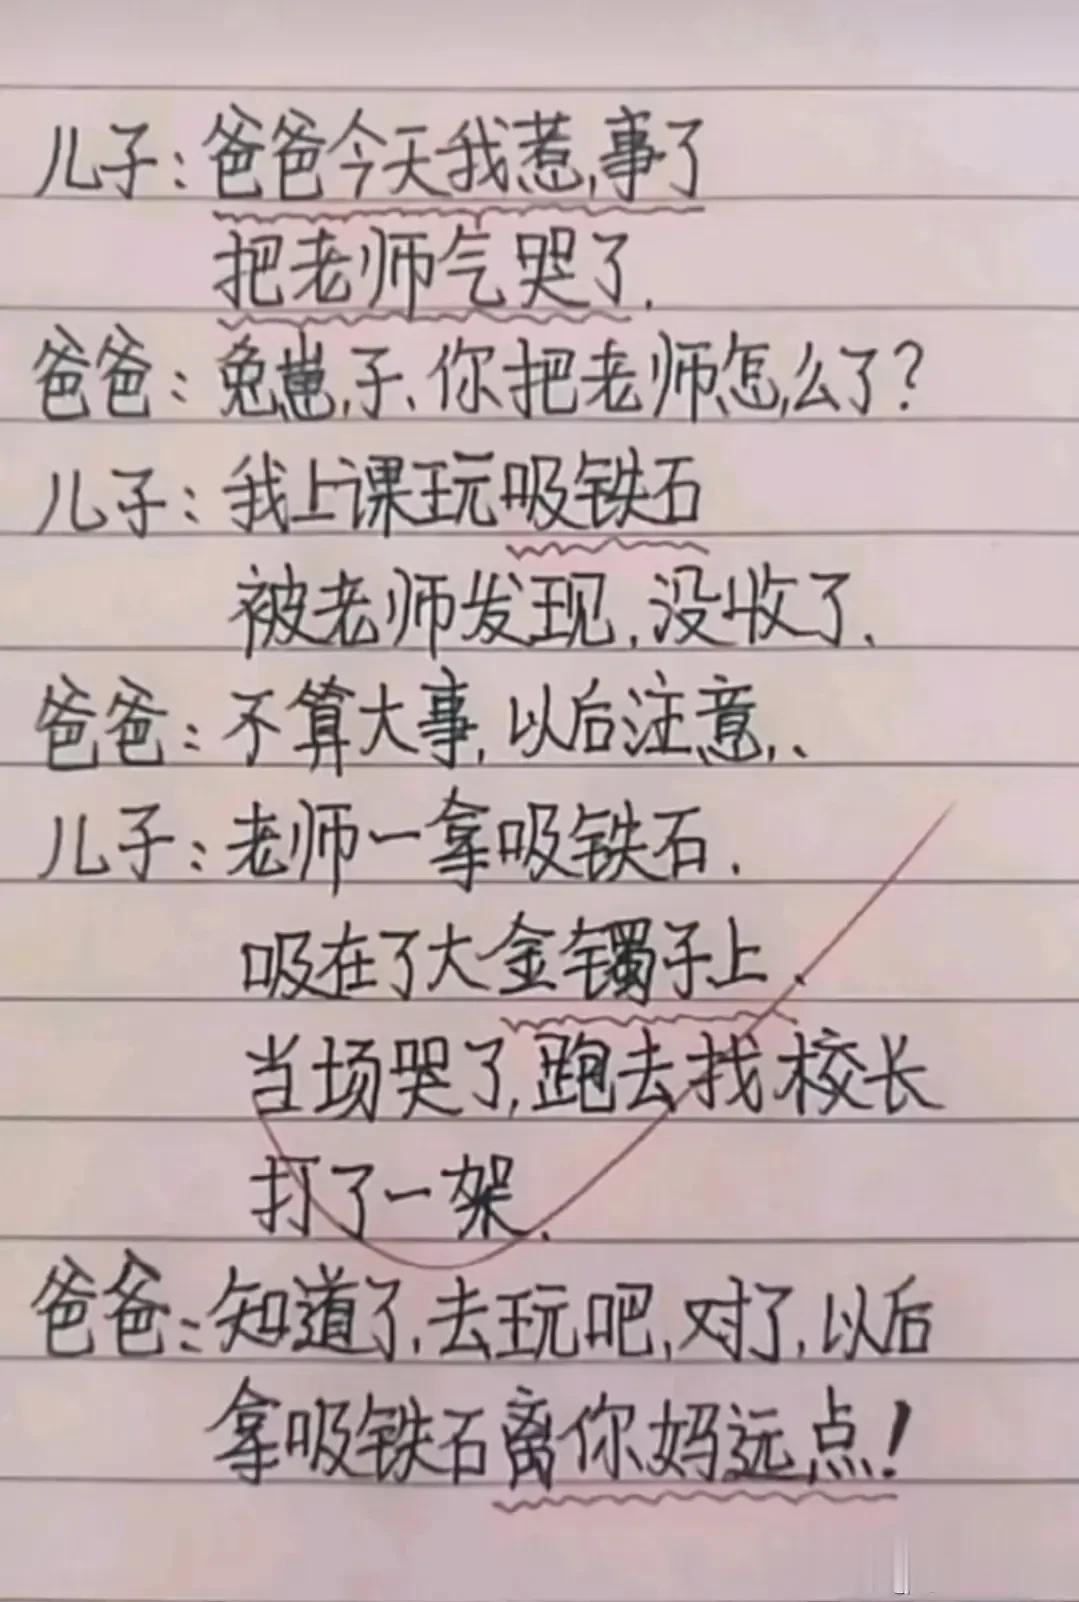 儿子:爸爸今天我惹事了
把老师气哭了.
爸爸:兔崽子、你把老师怎么了?
儿子:我上课玩吸铁石
被老师发现,没收了、
爸爸:不算大事,以后注意,、
儿子:老师一拿吸铁石.
吸在了大金镯子上、
当场哭了,跑去找校长
打了一架.
爸爸:知道了,去玩吧,对了,以后
拿吸铁石离你妈远点!